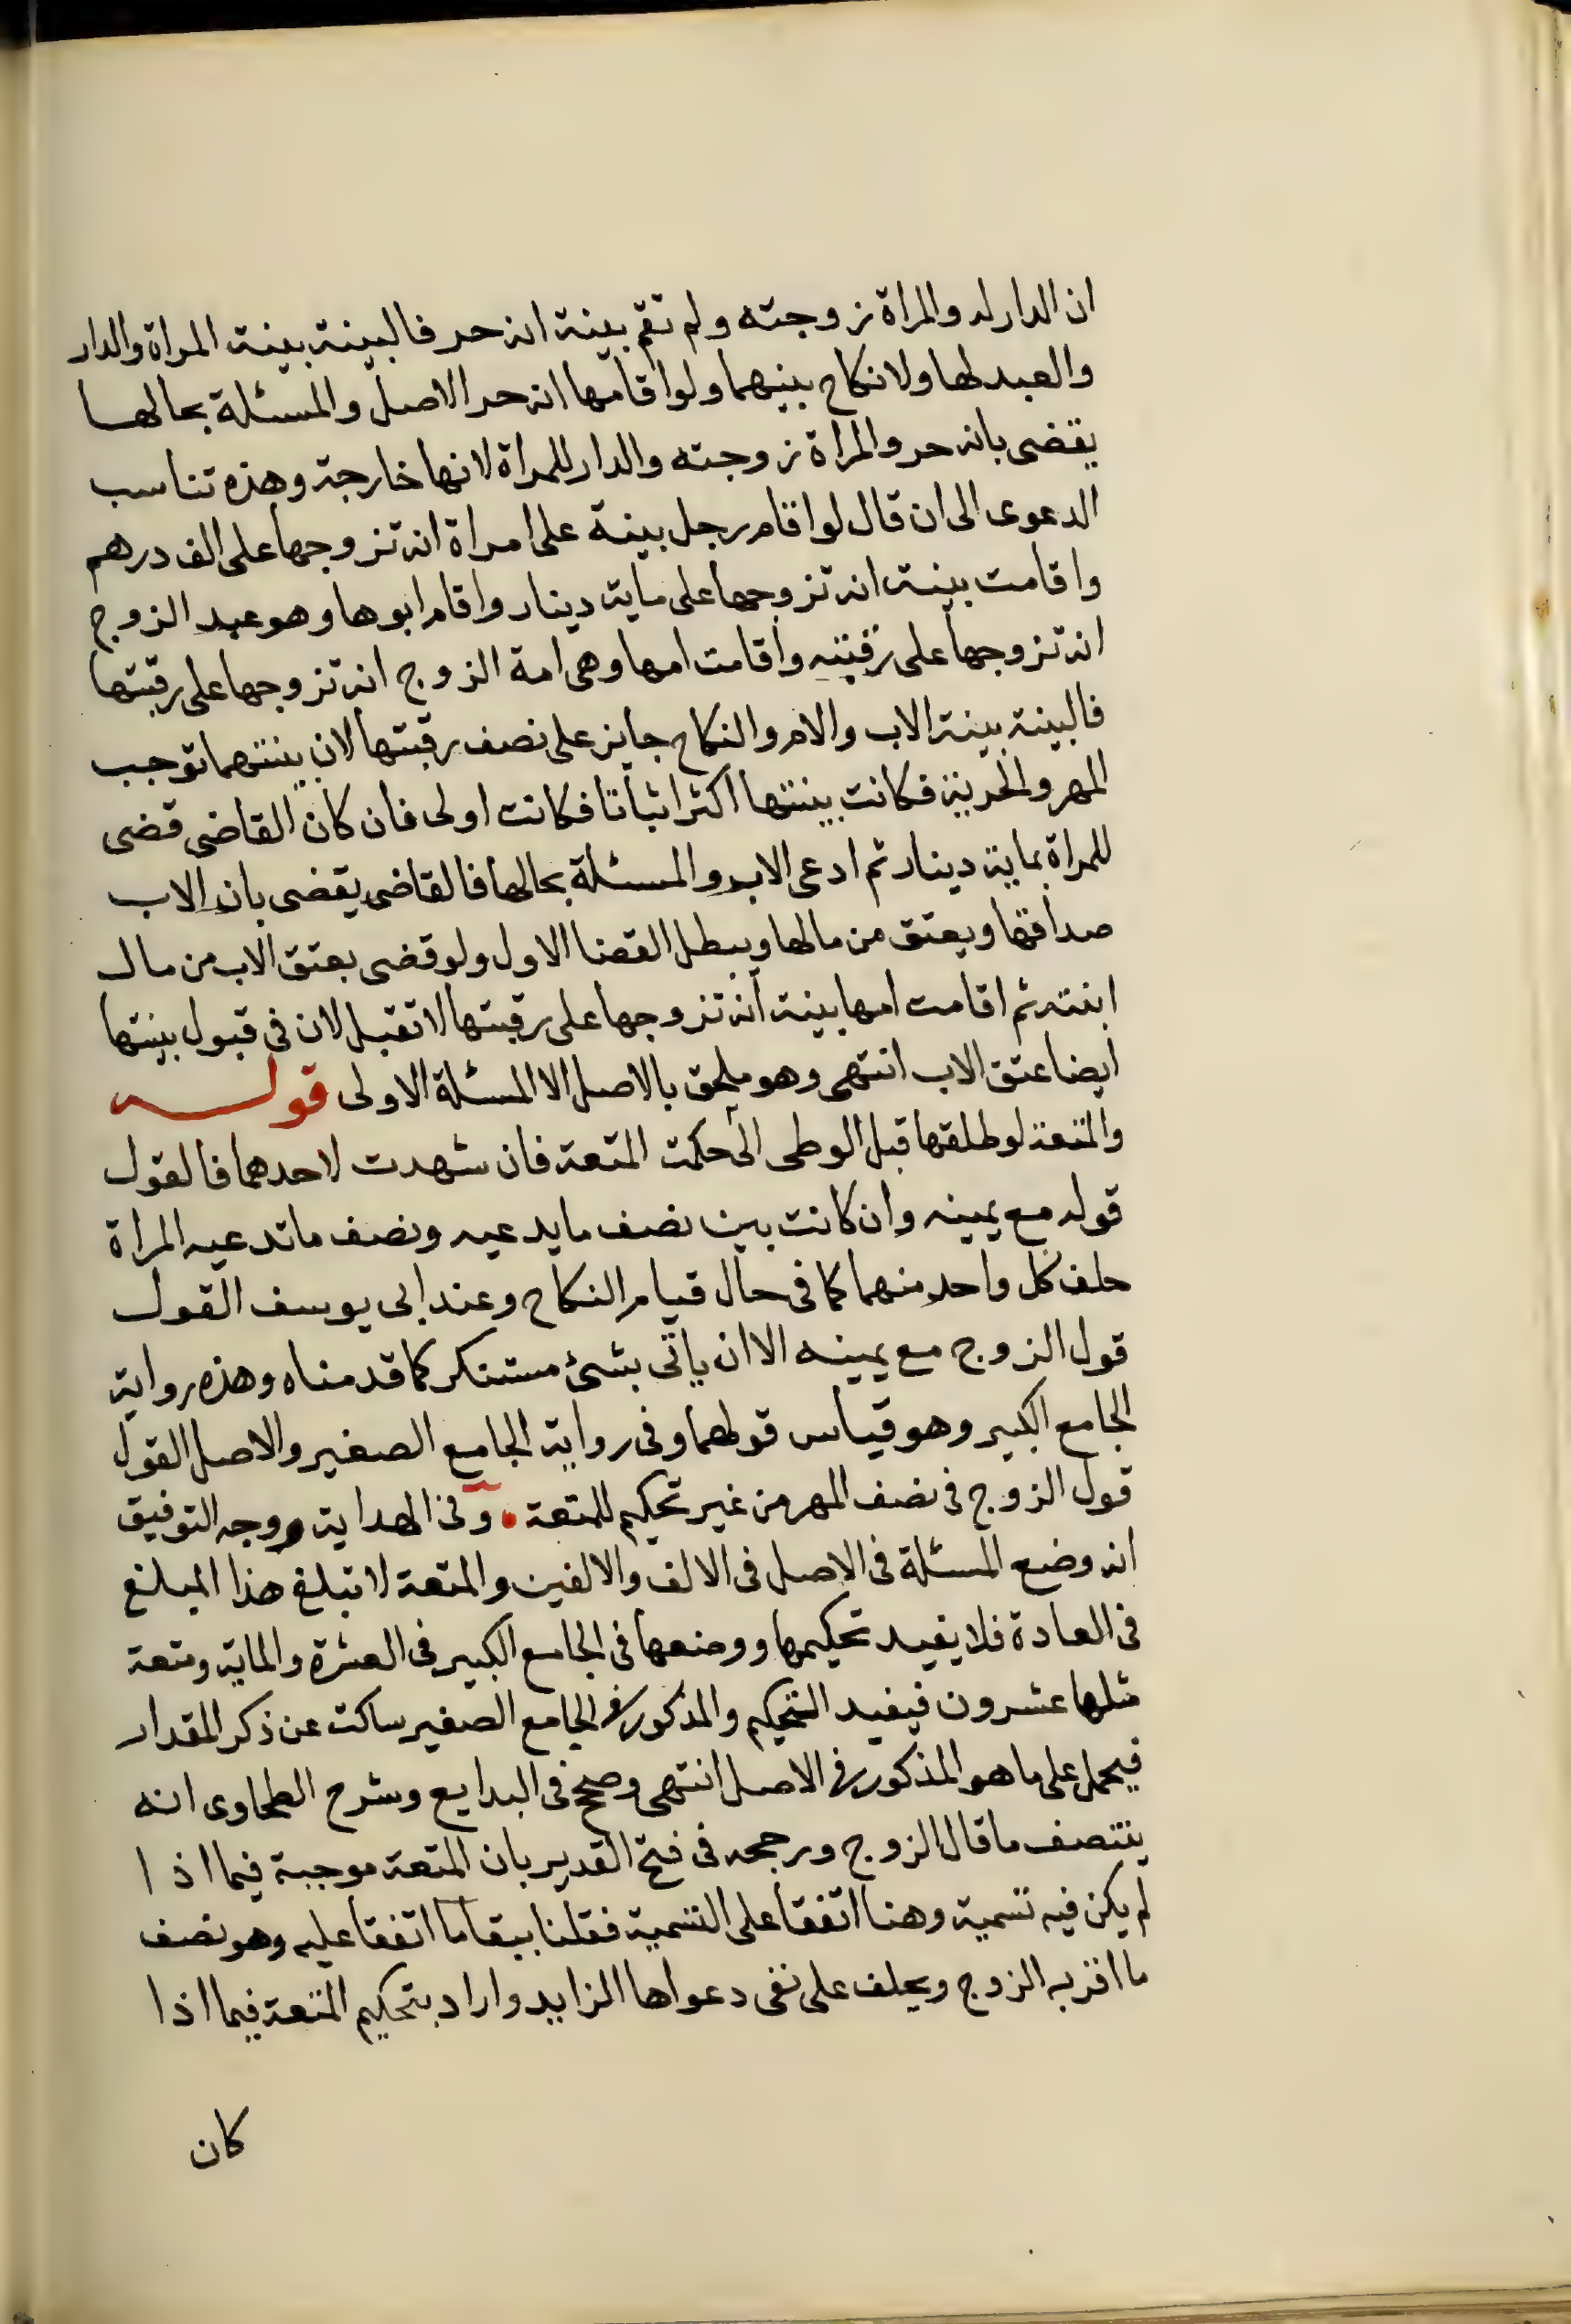 ان الدار له والمراة زوجته ولم تقم بينة انه حر فالبينة بينة المراة والدار
والعبد لها ولا نكاح بينهما ولو اقامها انه حر الاصل والمسئلة بحالها
يقضى بانه حر والمراة زوجته والدار للمراة لانها خارجة وهذه تناسب
الدعوى الى ان قال لو اقام رجل بينة على امراة انه تزوجها على الف درهم
واقامت بينة انه تزوجها على ماية دينار واقام ابوها وهو عبد الزوج
انه تزوجها على رقبته واقامت امها وهى امة الزوج انه تزوجها على رقبتها
فالبينة بينة الاب والام والنكاح جايز على نصف رقبتها لان بينتهما توجب
المهر والحرية فكانت بينتها اكثر اثباتا فكانت اولى فان كان القاضى قضى
للمراة بماية دينار ثم ادعى الاب والمسئلة بحالها فالقاضى يقضى بان الاب
صداقها ويعتق من مالها ويبطل القضا الاول ولو قضى بعتق الاب من مال
ابنته ثم اقامت امها بينة انه تزوجها على رقبتها لا تقبل لان فى قبول بينتها
ايضا عتق الاب انتهى وهو ملحق بالاصل الا المسئلة الاولى قوله
والمتعة لو طلقها قبل الوطى اى حكمت المتعة فان شهدت لاحدهما فالقول
قوله مع يمينه وان كانت بين نصف ما يدعيه ونصف ما تدعيه المراة
حلف كل واحد منهما كما فى حال قيام النكاح وعند ابى يوسف القول
قول الزوج مع يمينه الا ان ياتى بشئ مستنكر كما قدمناه وهذه رواية
الجامع الكبير وهو قياس قولهما وفى رواية الجامع الصغير والاصل القول
قول الزوج فى نصف المهر من غير تحكيم للمتعة • وفى الهداية ووجه التوفيق
انه وضع المسئلة فى الاصل فى الالف والالفين والمتعة لا تبلغ هذا المبلغ
فى العادة فلا يفيد تحكيمها ووضعها فى الجامع الكبير فى العشرة والماية ومتعة
مثلها عشرون فيفيد التحكيم والمذكور فى الجامع الصغير ساكت عن ذكر المقدار
فيحمل على ما هو المذكور فى الاصل انتهى وصحح فى البدايع وشرح الطحاوى انه
يتنصف ما قال الزوج ورجحه فى فتح القدير بان المتعة موجبة فيما اذا
لم يكن فيه تسمية وهنا اتفقا على التسمية فقلنا ببقا ما اتفقا عليه وهو نصف
ما اقر به الزوج ويحلف على نفى دعواها الزايد واراد بتحكيم المتعة فيما اذا
كان